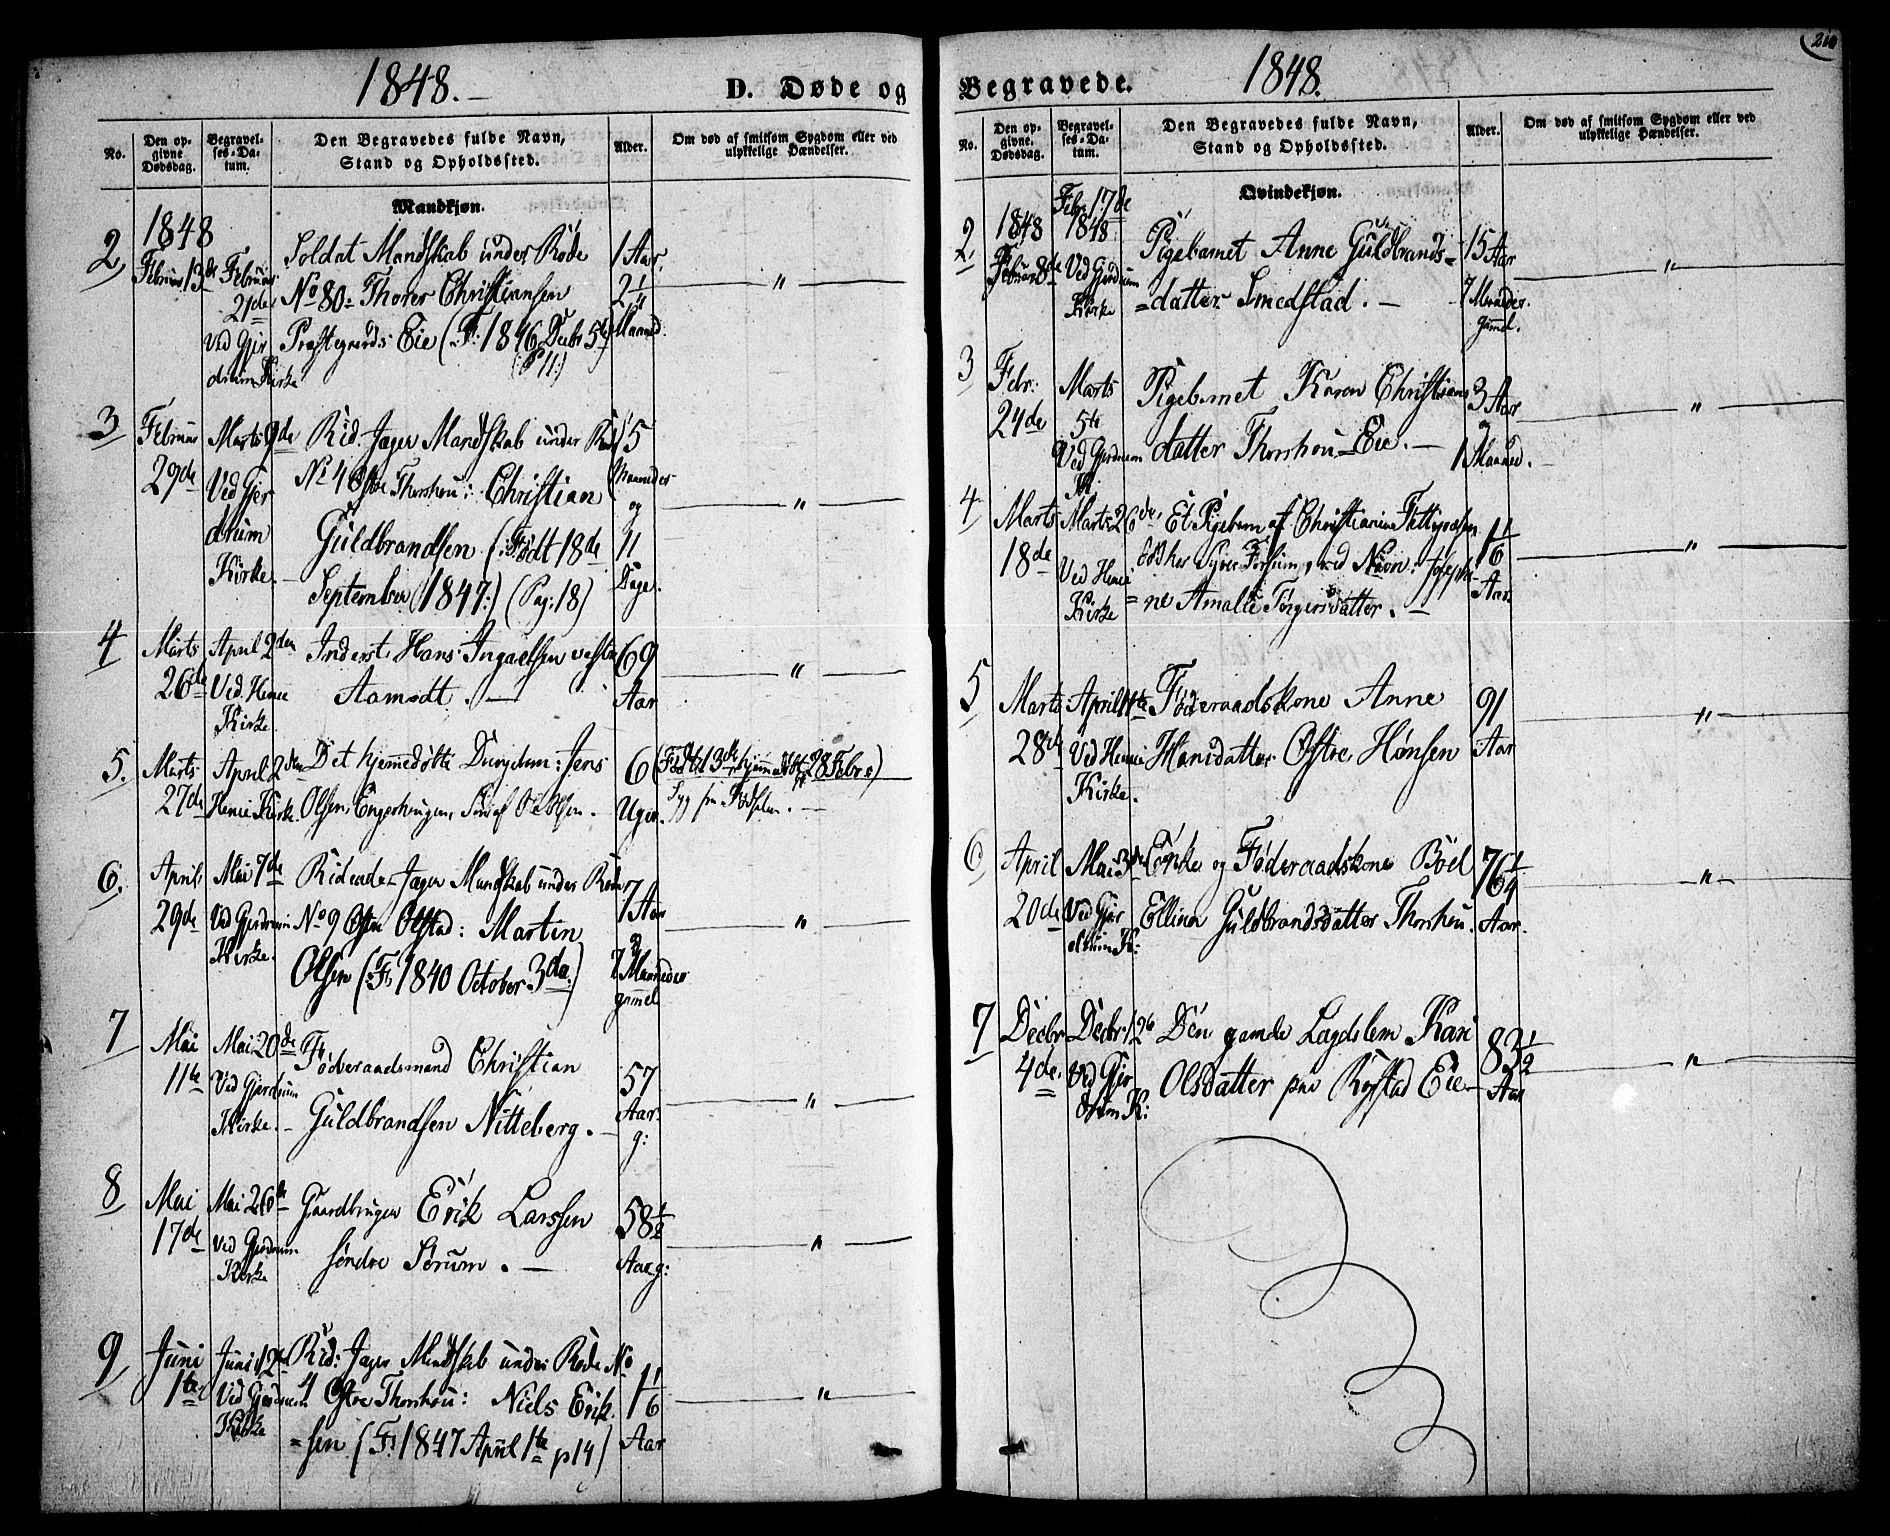 1848.
D. Døde og
No.
Den op-
givne
Dødsdag.
Begravel-
ses-Da-
tum.
Den Begravedes fulde Navn,
Stand og Opholdssted.
Alder.
Om død af smitsom Sygdom eller ved
ulykkelige Hændelser.
Mandkjøn.
1848
2,
Februar 13de
Februar
21de
Ved Gjer
drum Kirke
Soldat Mandskab under Rode
No 80 = Thorer Christiansen
Præstegaards Eie (F: 1846 Decbr 5te
(P 11:)
1 Aar
2 1/4
Maaned
"
3
Februar
29de
Marts 9de
Ved Gjer
drum
Kirke. -
Rid: Jager Mandskab under Rode
No 4 Østre Thorshou: Christian
Guldbrandsen (Født 18de
September 1847:) (Pag: 18)
5
Maaneder
og
11
Dage.
"
4
Marts
26de
April 2den
Ved Henie
Kirke
Inderst Hans Ingvaldsen vestre
Aamodt. -
69
Aar
"
5.
Marts
27de
April 2den
Henie Kirke.
Det hjemmedøbte Drengebarn: Jens
Olsen, Engerhaugen, Søn af
6
Uger.
(Født 13de hjemmedøbt 28 Febr:)
Syg fra Fødselen. -
6.
April
29de
Mai 7de
Ved Gjerdrum
Kirke.
Ridende Jager Mandskab under Rode
No 9 Østre Olstad: Martin
Olsen (F: 1840 October 3de:)
7 Aar
7 Maaneder
gammel
"
7
Mai
11te
Mai 20de
Ved Gjerdrum
Kirke. -
Føderaadsmand Christian
Guldbrandsen Nitteberg. -
57
Aar
g:
"
8
Mai
17de
Mai 26de
Ved Gjerdrum
Kirke
Gaardbruger Erik Larssen
søndre Sørum. -
58 1/2
Aar g:
"
9
Juni
1te
Juni 12te
Ved Gjerdrum
Kirke
Rid: Jager Mandskab under Rode No
4 Østre Thorshou: Niels Erik
=sen (F: 1847 April 1te p 14)
1 1/6
Aar
"
210
Begravede.
1848.
No.
Den op-
givne.
Dødsdag.
Begravel-
ses-Da-
tum.
Den Begravedes fulde Navn,
Stand og Opholdssted.
Alder.
Om død af smitsom Sygdom eller ved
ulykkelige Hændelser.
Qvindekjøn.
2
1848
Februar 8de
Febr: 17de
1848
Ved Gjerdrum
Kirke
Pigebarnet Anne Guldbrands=
=datter Smedstad. -
15 Aar
7 Maaneder
gammel.
"
3
Febr:
24de
Marts
5te
Ved Gjerdrum
K:
Pigebarnet Karen Christians
datter Thorshou Eie. -
3 Aar
1 Maaned. -
"
4
Marts
18de
Marts 26de
Ved Henie
Kirke
Et Pigebarn af Christianine
ved Navn: Josephi-
=ne Amalie Torgersdatter. -
1 1/6
Aar
"
5
Marts
28de
April 11te
Ved Henie
Kirke.
Føderaadskone Anne
Hansdatter Østre Hønsen
91
Aar
"
6
April
20de
Mai 3de
Ved Gjer
drum K:
Enke og Føderaadskone Boel
Ellina Guldbrandsdatter Thorshou.
76 1/4
Aar.
"
7
Decbr
4de.
Decbr 12te
Ved Gjer
drum K:
Den gamle Lægdslem Kari
Olsdatter paa Rogstad Eie -
83 1/2
Aar
"